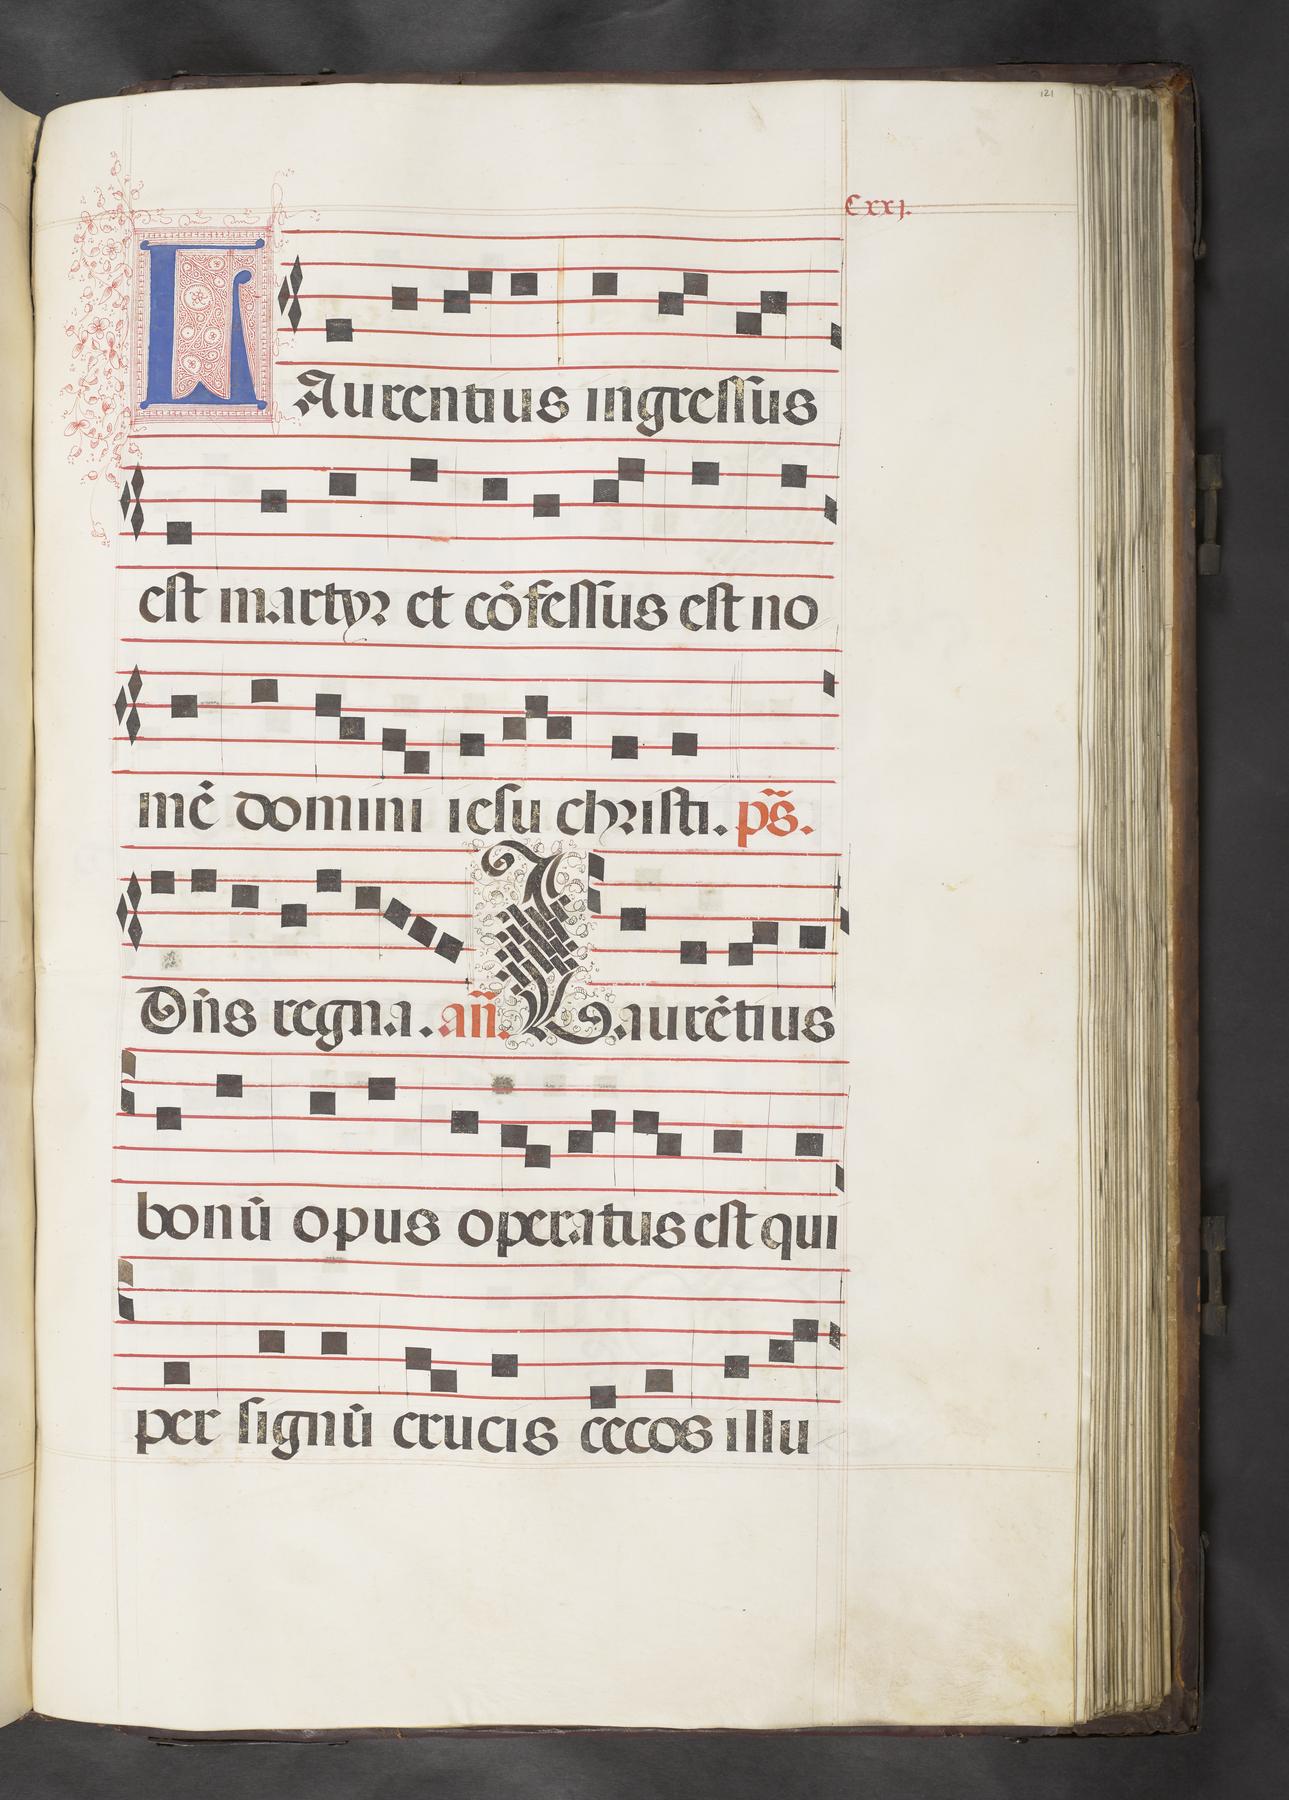 121
Cxxj.
LAurentius ingressus
est martyr et cōfessus est no
mē domini iesu christi. ps̄.
Dn̄s regna. an̄. Laurētius
bonū opus operatus est qui
per signū crucis cecos illu